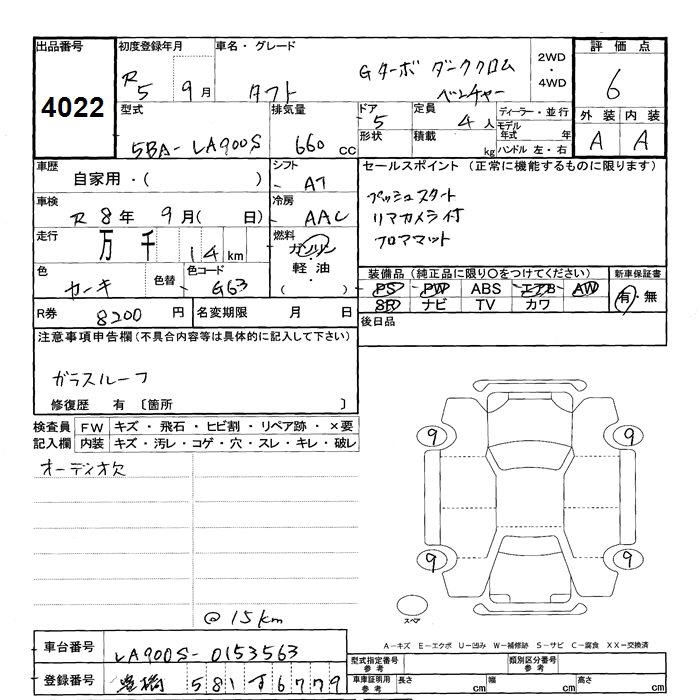 出品番号 4022
初度登録年月 R5 9月
車名・グレード タフト Gターボ ダーククロム ベンチャー
2WD ・ 4WD
評価点 6
外装 内装
A A
型式 5BA-LA900S
排気量 660 cc
ドア 5
形状
定員 4人
積載 kg
ディーラー・並行
モデル年式 年
ハンドル 左・右
車歴 自家用・( )
シフト AT
車検 R8年 9月( 日)
冷房 AAC
走行 万 千 14 km
燃料 ガソリン ・ 軽油 ( )
色 カーキ
色替
色コード G63
セールスポイント (正常に機能するものに限ります)
プッシュスタート
リアカメラ付
フロアマット
装備品 (純正品に限り○をつけてください)
新車保証書
PS PW ABS エアB AW
有・無
SR ナビ TV カワ
R券 8200 円
名変期限 月 日
後日品
注意事項申告欄 (不具合内容等は具体的に記入して下さい)
ガラスルーフ
修復歴 有 〔箇所 〕
検査員記入欄
FW キズ・飛石・ヒビ割・リペア跡・×要
内装 キズ・汚レ・コゲ・穴・スレ・キレ・破レ
オーディオ欠
@15km
9 9
9 9
スペア
A-キズ E-エクボ U-凹み W-補修跡 S-サビ C-腐食 XX-交換済
車台番号 LA900S-0153563
登録番号 豊橋 581 す 6779
型式指定番号 参考
類別区分番号 参考
車庫証明用 参考
長さ cm 幅 cm 高さ cm